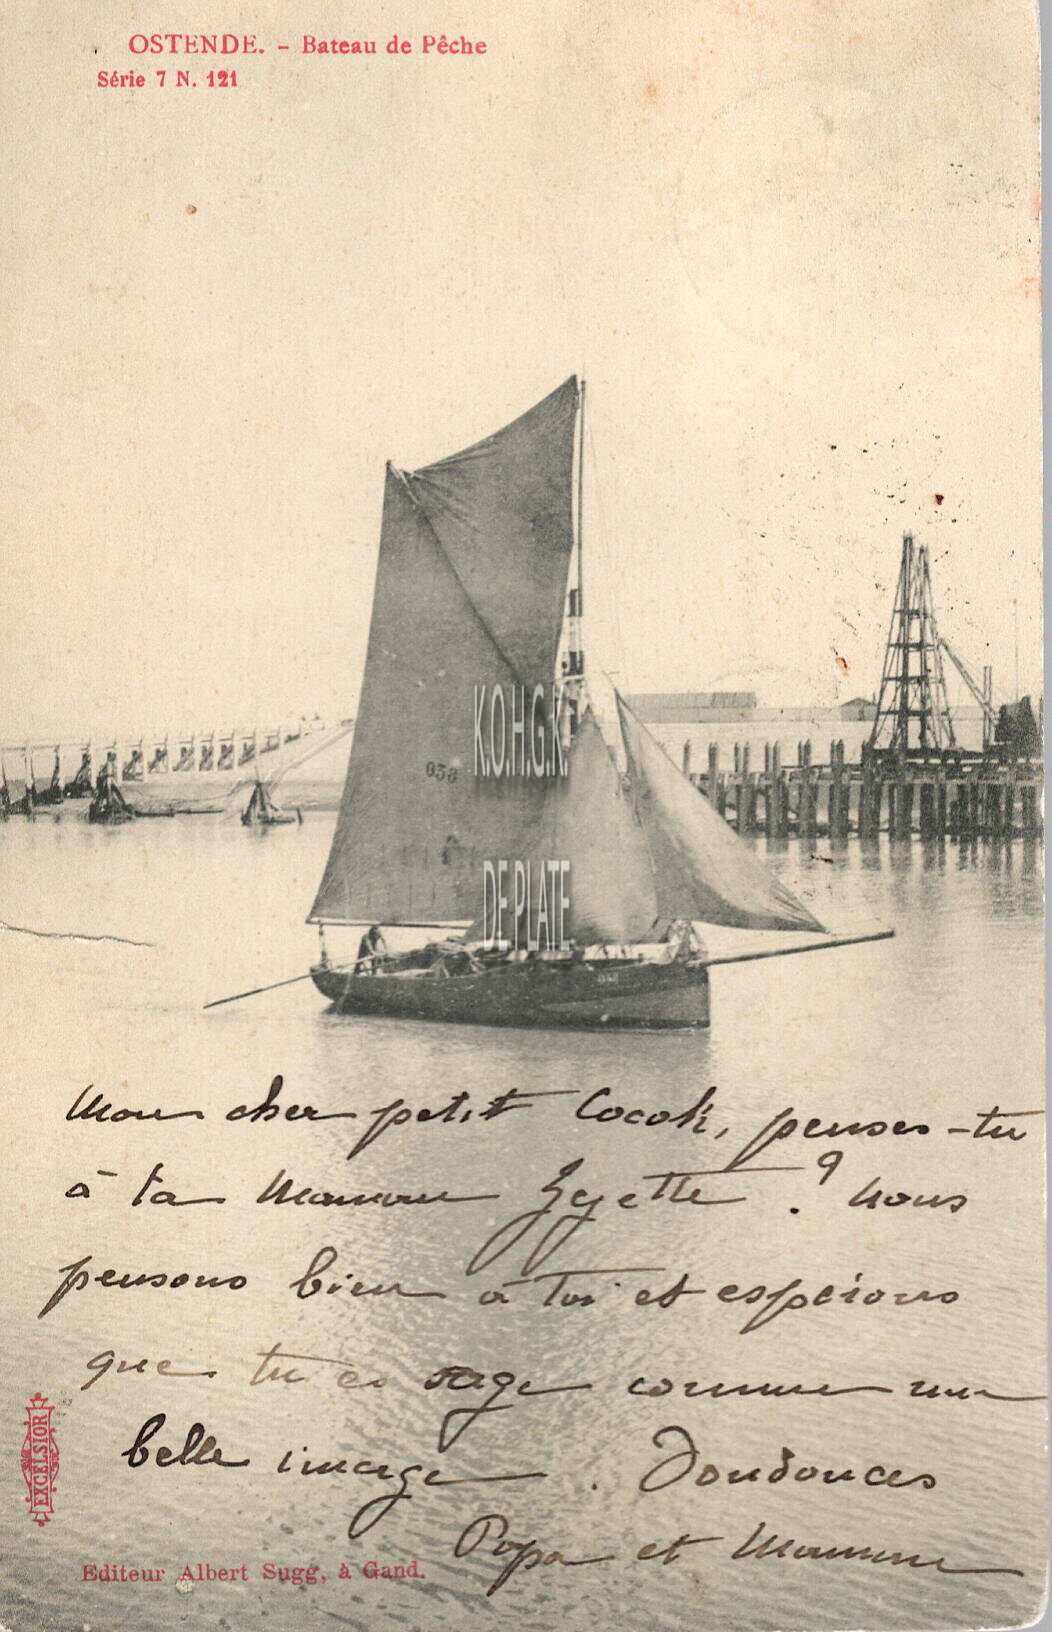 OSTENDE. - Bateau de Pêche
Série 7 N. 121
038
K.O.H.G.K.
DE PLATE
Mon cher petit Cocoli, penses-tu
à ta Maman Zezette ? Nous
pensons bien à toi et espérons
que tu es sage comme une
belle image. Doudouces
Papa et Maman
EXCELSIOR
Editeur Albert Sugg, à Gand.